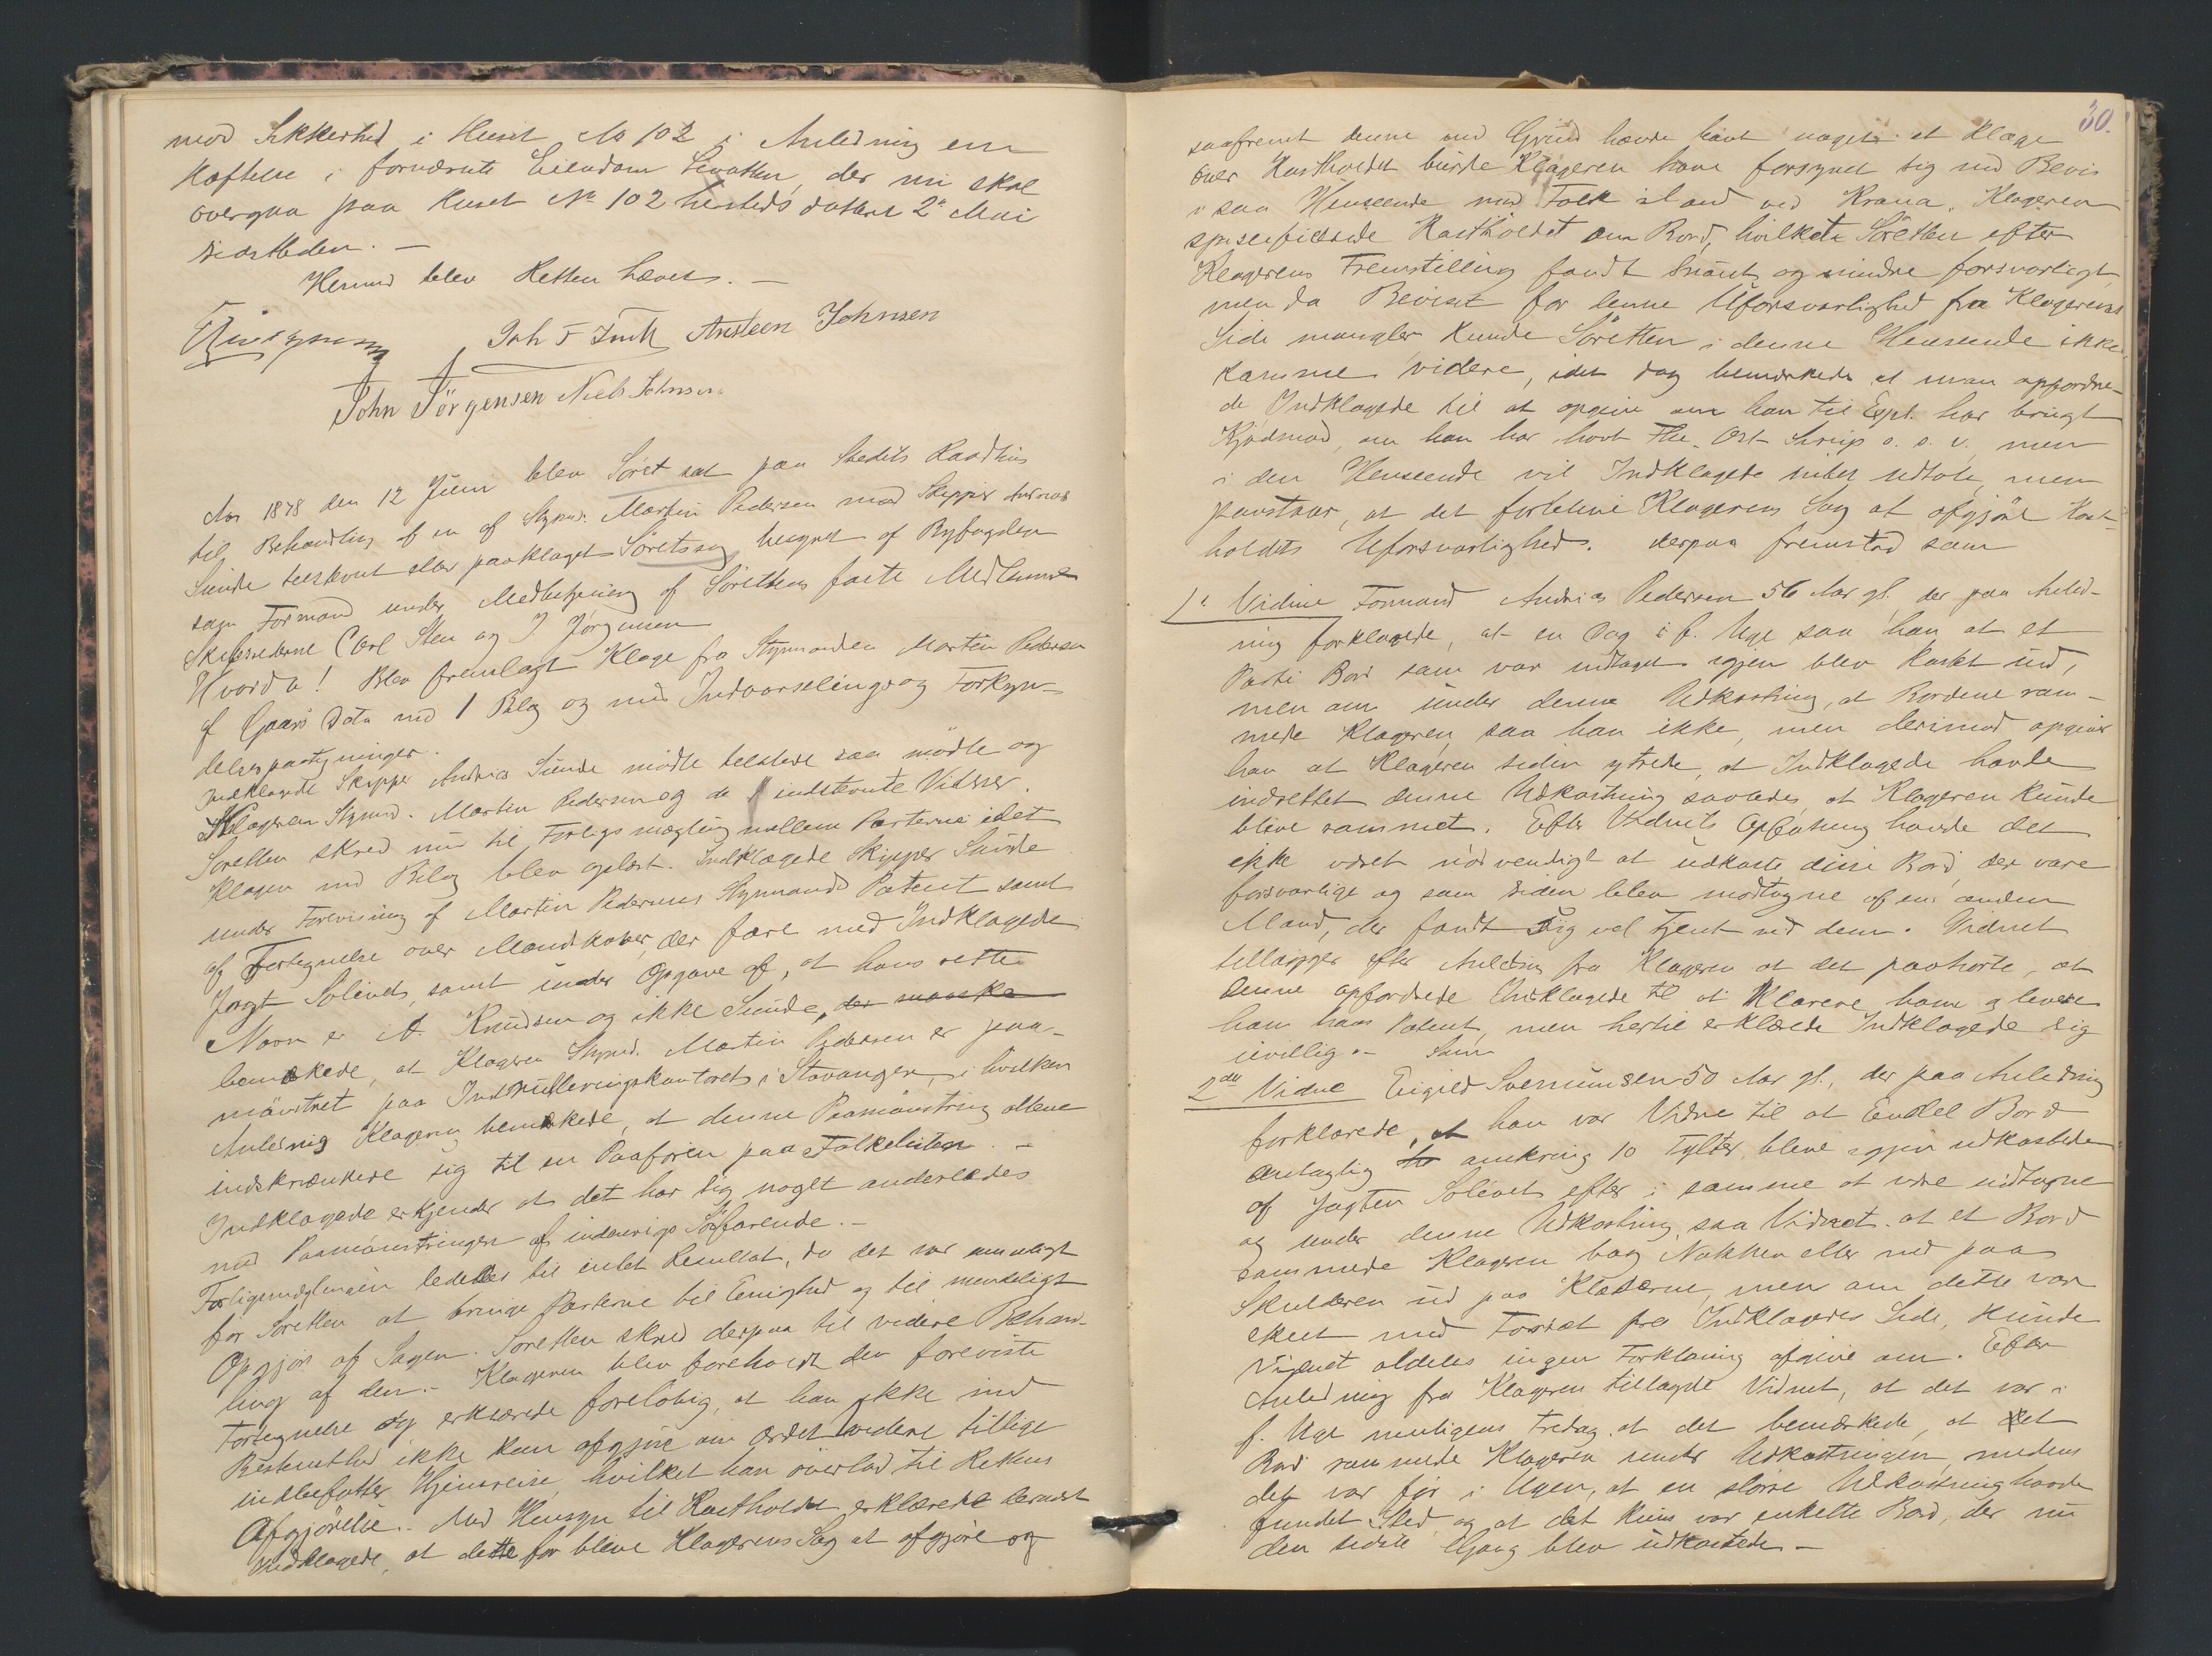 med Sikkerhed i Huset No 102 i Anledning en
Hæftelse i fornævnte Eiendom Livatten, der nu skal
overgaa paa Huset No 102 hersteds dateret 2den Mai
sidstleden. —
Hermed blev Retten hævet. —
Joh F Smith Aresteen Johnsen
John Jörgensen Niels Johnsen
Aar 1878 den 12 Juni blev Söret sat paa Stedets Raadhus
til Behandling af en af Styrmd. Martin Pedersen mod Skipper Andreas
Sunde beskreven eller paaklaget Söretssag betjent af Byfogden
som Formand under Medbetjening af Sörettens faste Medlemmer
Skibsrederne Carl Sten og J Jörgensen
Hvorda! Blev fremlagt Klage fra Styrmanden Martin Pedersen
af Gaars Dato med 1 Bilag og med Indvarslings og Forkyn-
delsespaategninger.
Indklagede Skipper Andreas Sunde mödte tilstede saa mödte og
Klageren Styrmd. Martin Pedersen og de indstevnte Vidner.
Söretten skred nu til Forligsmægling mellem Parterne idet
Klagen med Bilag blev oplæst. Indklagede Skipper Sunde
under Forevisning af Martin Pedersens Styrmands Patent samt
af Fortegnelse over Mandskaber, der fare med Indklagede
Jagt Solivet, samt under Opgave af, at hans rette
Navn er A. Knudsen og ikke Sunde, der maaske
bemærkede, at Klageren Styrmd. Martin Pedersen er paa-
mönstret paa Indrulleringskontoret i Stavanger, i hvilken
Anledning Klageren bemærkede, at denne Paamönstring allene
indskrænkede sig til en Paafören paa Folkelisten. —
Indklagede erkjender at det har sig noget anderledes
med Paamönstringen af indenrigs Söfarende. —
Forligsmæglingen ledede til intet Resultat, da det var umuligt
for Söretten at bringe Parterne til Enighed og til mindeligt
Opgjör af Sagen. Söretten skred derpaa til videre Behand-
ling af den. — Klageren blev foreholdt den foreviste
Fortegnelse og erklærede forelöbig, at han ikke med
Bestemthed ikke kan afgjöre om ordet videre tillige
indbefatter Hjemreise, hvilket han overlod til Rettens
Afgjörelse. — Med Hensyn til Kostholdet erklærede dernæst
Indklagede, at dette for bleve Klagerens Sag at afgjöre og
30.
saafremt denne med Grund havde havt noget at Klage
over Kostholdet burde Klageren have forsynet sig med Bevis
i saa Henseende med Folk iland ved Krana. Klageren
spesificerede Kostholdet om Bord, hvilket Söretten efter
Klagerens Fremstilling fandt knapt og mindre forsvarligt
men da Beviset for denne Uforsvarlighed fra Klagerens
Side mangler kunde Söretten i denne Henseende ikke
komme videre, idet dog bemærkedes at man opfordre-
de Indklagede til at opgive om han til Expl. har brugt
Kjödmad, om han har havt The, Ost Sirup o. s. v. men
i den Henseende vil Indklagede intet udtale, men
paastaar, at det forbleve Klagerens Sag at afgjöre Kost-
holdets Uforsvarlighed. Derpaa fremstod som
1e Vidne Formand Andreas Pedersen 56 Aar gl. der paa Anled-
ning forklarede, at en Dag i f. Uge saa han at et
Parti Bord som var indtaget igjen blev kastet ud,
men om under denne Udkastning, at Bordene ram-
mede Klageren, saa han ikke, men derimod opgiver
han at Klageren siden ytrede, at Indklagede havde
indrettet denne Udkastning saaledes at Klageren kunde
blive rammet. Efter Vidnets Opfatning havde det
ikke været nödvendigt at udkaste disse Bord, der vare
forsvarlige og som siden blev modtagne af en anden
Mand, der fandt sig vel tjent med dem. Vidnet
tillægger efter Anledning fra Klageren at det paahörte, at
denne opfordrede Indklagede til at Klarere ham og levere
ham hans Patent, men hertil erklærede Indklagede sig
uvillig. — Som
2det Vidne Eigild Svennumsen 50 Aar gl., der paa Anledning
forklarede, at han var Vidne til at Endel Bord
antaglig omkring 10 Tylter, bleve igjen udkastede
af Jagten Solivet efter i samme at være indtagne
og under denne Udkastning, saa Vidnet at et Bord
rammede Klageren bag Nakken eller ned paa
Skulderen ud paa Klæderne, men om dette var
skeet med Forsæt fra Indklagedes Side, kunde
Vidnet aldeles ingen Forklaring afgive om. Efter
Anledning fra Klageren tillagde Vidnet, at det var i
f. Uge muligens Fredag at det bemærkede, at et
Bord rammede Klageren under Udkastningen, medens
det var för i Ugen, at en större Udkastning havde
fundet Sted, og at det kuns var enkelte Bord, der nu
den sidste Gang blev udkastede —